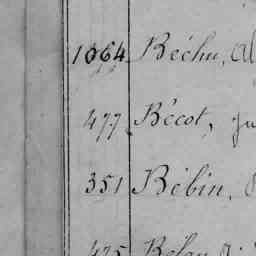 1064 Béchu, Al
477 Bécot, ju
351 Bébin,
475